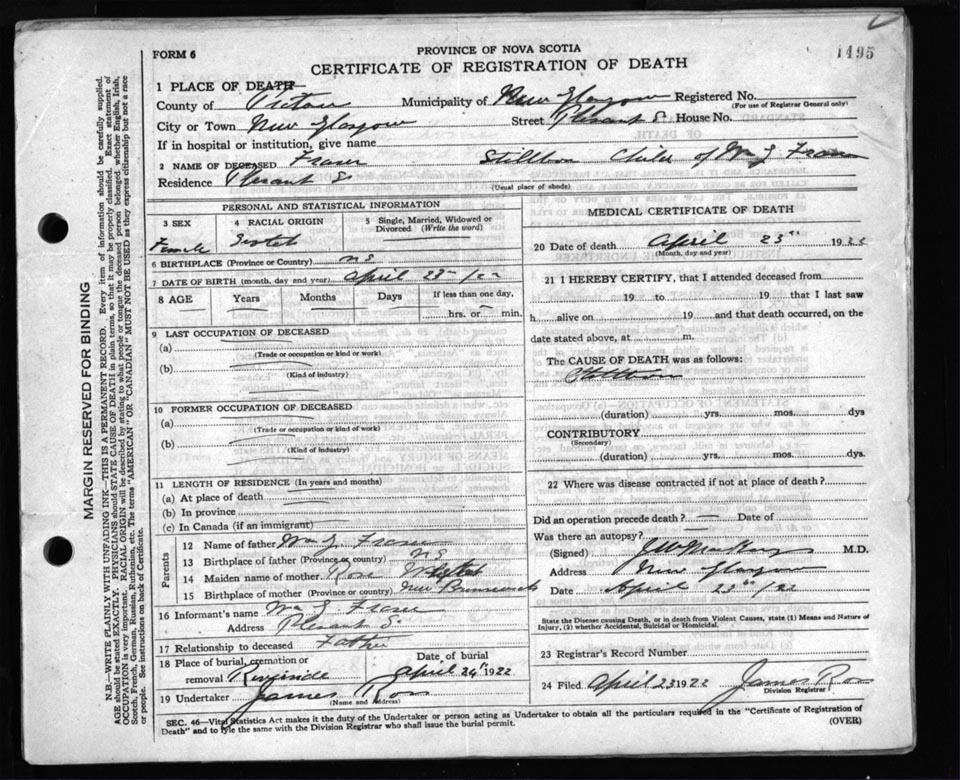 1495
FORM 6
PROVINCE OF NOVA SCOTIA
CERTIFICATE OF REGISTRATION OF DEATH
1 PLACE OF DEATH
County of Pictou Municipality of New Glasgow Registered No.
(For use of Registrar General only)
City or Town New Glasgow Street Plesant S House No.
If in hospital or institution, give name
2 NAME OF DECEASED Fraser Stillborn Child of Wm J Fraser
Residence Plesant S
(Usual place of abode)
PERSONAL AND STATISTICAL INFORMATION
3 SEX 4 RACIAL ORIGIN 5 Single, Married, Widowed or Divorced (Write the word)
Female Scotch
6 BIRTHPLACE (Province or Country) NS
7 DATE OF BIRTH (month, day and year) April 23rd /22
8 AGE Years Months Days If less than one day,
hrs. or min.
9 LAST OCCUPATION OF DECEASED
(a)
(Trade or occupation or kind or work)
(b)
(Kind of industry)
10 FORMER OCCUPATION OF DECEASED
(a)
(Trade or occupation or kind of work)
(b)
(Kind of industry)
11 LENGTH OF RESIDENCE (In years and months)
(a) At place of death
(b) In province
(c) In Canada (if an immigrant)
Parents
12 Name of father Wm J Fraser
13 Birthplace of father (Province or country) NS
14 Maiden name of mother Rose
15 Birthplace of mother (Province or country) New Brunswick
16 Informant's name Wm J Fraser
Address Plesant S
17 Relationship to deceased Father
18 Place of burial, cremation or Date of burial
removal Riverside April 24th 1922
19 Undertaker James Ross
(Name and Address)
MEDICAL CERTIFICATE OF DEATH
20 Date of death April 23rd 1922
(Month, day and year)
21 I HEREBY CERTIFY, that I attended deceased from
19 to 19 that I last saw
h alive on 19 and that death occurred, on the
date stated above, at m.
The CAUSE OF DEATH was as follows:
Stillborn
(duration) yrs. mos. dys
CONTRIBUTORY
(Secondary)
(duration) yrs. mos. dys.
22 Where was disease contracted if not at place of death?
Did an operation precede death? — Date of
Was there an autopsy?
(Signed) M.D.
Address New Glasgow
Date April 23rd /22
State the Disease causing Death, or in death from Violent Causes, state (1) Means and Nature of
Injury, (2) whether Accidental, Suicidal or Homicidal.
23 Registrar's Record Number
24 Filed April 23 1922 James Ross
Division Registrar
SEC. 46—Vital Statistics Act makes it the duty of the Undertaker or person acting as Undertaker to obtain all the particulars required in the "Certificate of Registration of
Death" and to file the same with the Division Registrar who shall issue the burial permit. (OVER)
MARGIN RESERVED FOR BINDING
N.B.—WRITE PLAINLY WITH UNFADING INK—THIS IS A PERMANENT RECORD. Every item of information should be carefully supplied.
AGE should be stated EXACTLY. PHYSICIANS should STATE CAUSE OF DEATH in plain terms, so that it may be properly classified. Exact statement of
OCCUPATION is very important. RACIAL ORIGIN will be described by stating to what people or tongue the deceased person belonged, whether English, Irish,
Scotch, French, German, Russian, Ruthenian, etc. The terms "AMERICAN" OR "CANADIAN" MUST NOT BE USED as they express citizenship but not a race
or people. See instructions on back of Certificate.